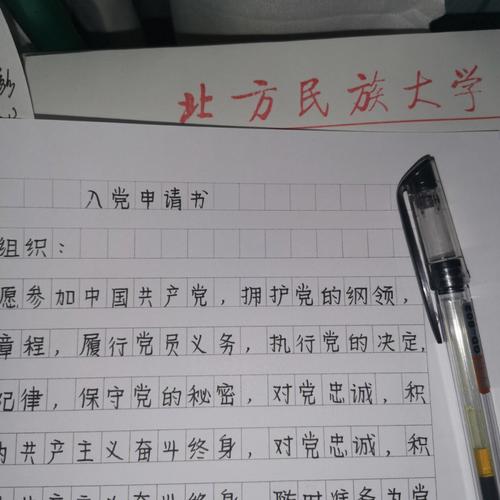 北方民族大学
入党申请书
组织：
愿参加中国共产党，拥护党的纲领，
章程，履行党员义务，执行党的决定，
纪律，保守党的秘密，对党忠诚，积
为共产主义奋斗终身，对党忠诚，积
共产主义奋斗终身，随时准备为党